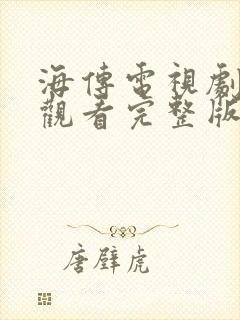 海傳電視劇
觀看完整版
唐壁虎